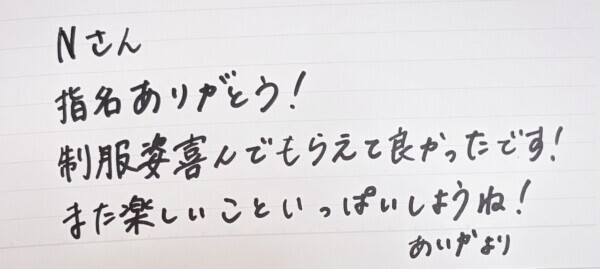 Nさん
指名ありがとう!
制服姿喜んでもらえて良かったです!
また楽しいこといっぱいしようね!
あいかより